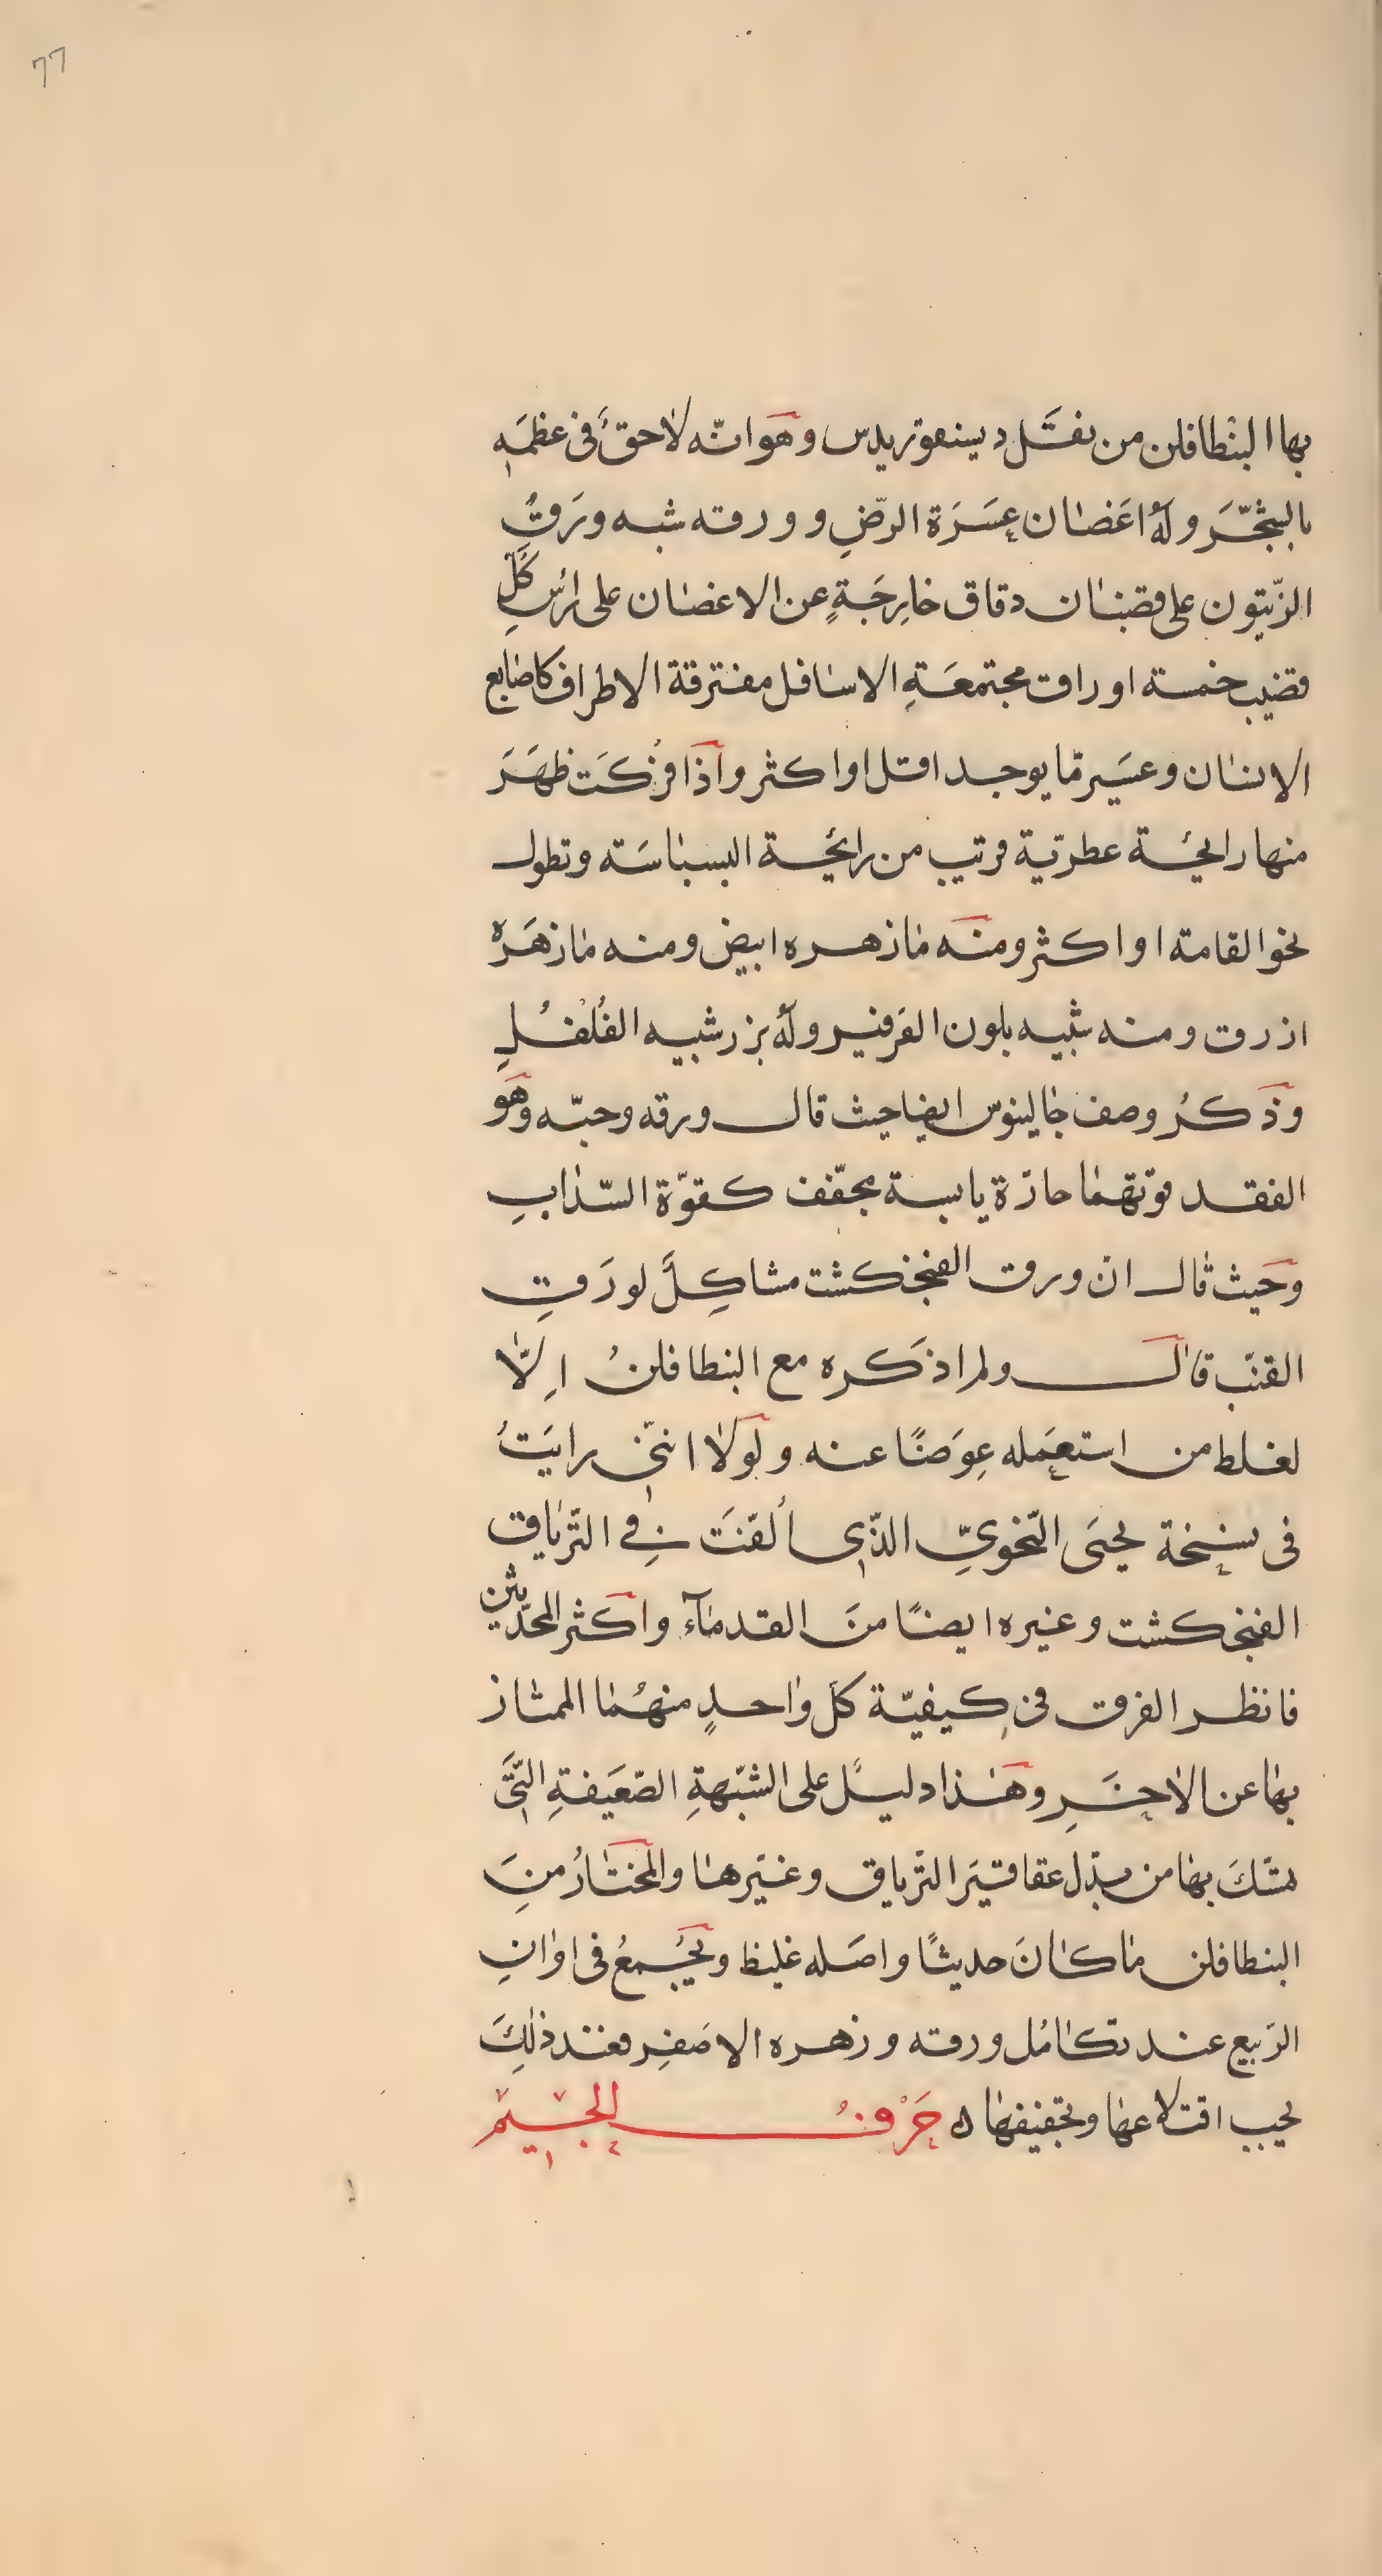 ٦٦
بها البنطافلن من نقل ديسنعوريدس وهو انّه لاحق فى عظمه
بالشجّر وله اغصان عسرة الرّض و ورقه شبه ورق
الزّيتون على قضبان دقاق خارجة عن الاغصان على رأس كلّ
قضيب خمسة اوراق مجتمعة الاسافل مفترقة الاطراف كاصابع
الانسان وعسير مّا يوجد اقل او اكثر واذا فركت ظهر
منها رائحة عطريّة قريب من رائحة البسباسة وتطول
نحو القامة او اكثر ومنه ما زهره ابيض ومنه ما زهره
ازرق ومنه شبيه بلون الفرفير وله بزر شبيه الفلفل
وذكر وصف جالينوس ايضا حيث قال ورقه وحبّه وهو
الفقد قوتهما حارّة يابسة مجفّف كقوّة السّذاب
وحيث قال انّ ورق الفنجنكشت مشاكل لورق
القنّب قال ولم اذكره مع البنطافلن الّا
لغلط من استعمله عوضًا عنه ولولا انّنى رايت
فى نسخة يحيى النّحوىّ الذّى ألقنت فى التّرياق
الفنجنكشت وغيره ايضًا من القدماء واكثر المحدّثين
فانظر الفرق فى كيفيّة كل واحد منهما الممتاز
بها عن الاخر وهذا دليل على الشبّهة الضّعيفة التّى
تمسّك بها من بدّل عقاقير التّرياق وغيرها والمختار من
البنطافلن ما كان حديثًا واصله غليظ ويجمع فى اوان
الرّبيع عند تكامل ورقه وزهره الاصفر فعند ذلك
يجب اقتلاعها وتجفيفها ه حرف الجيم